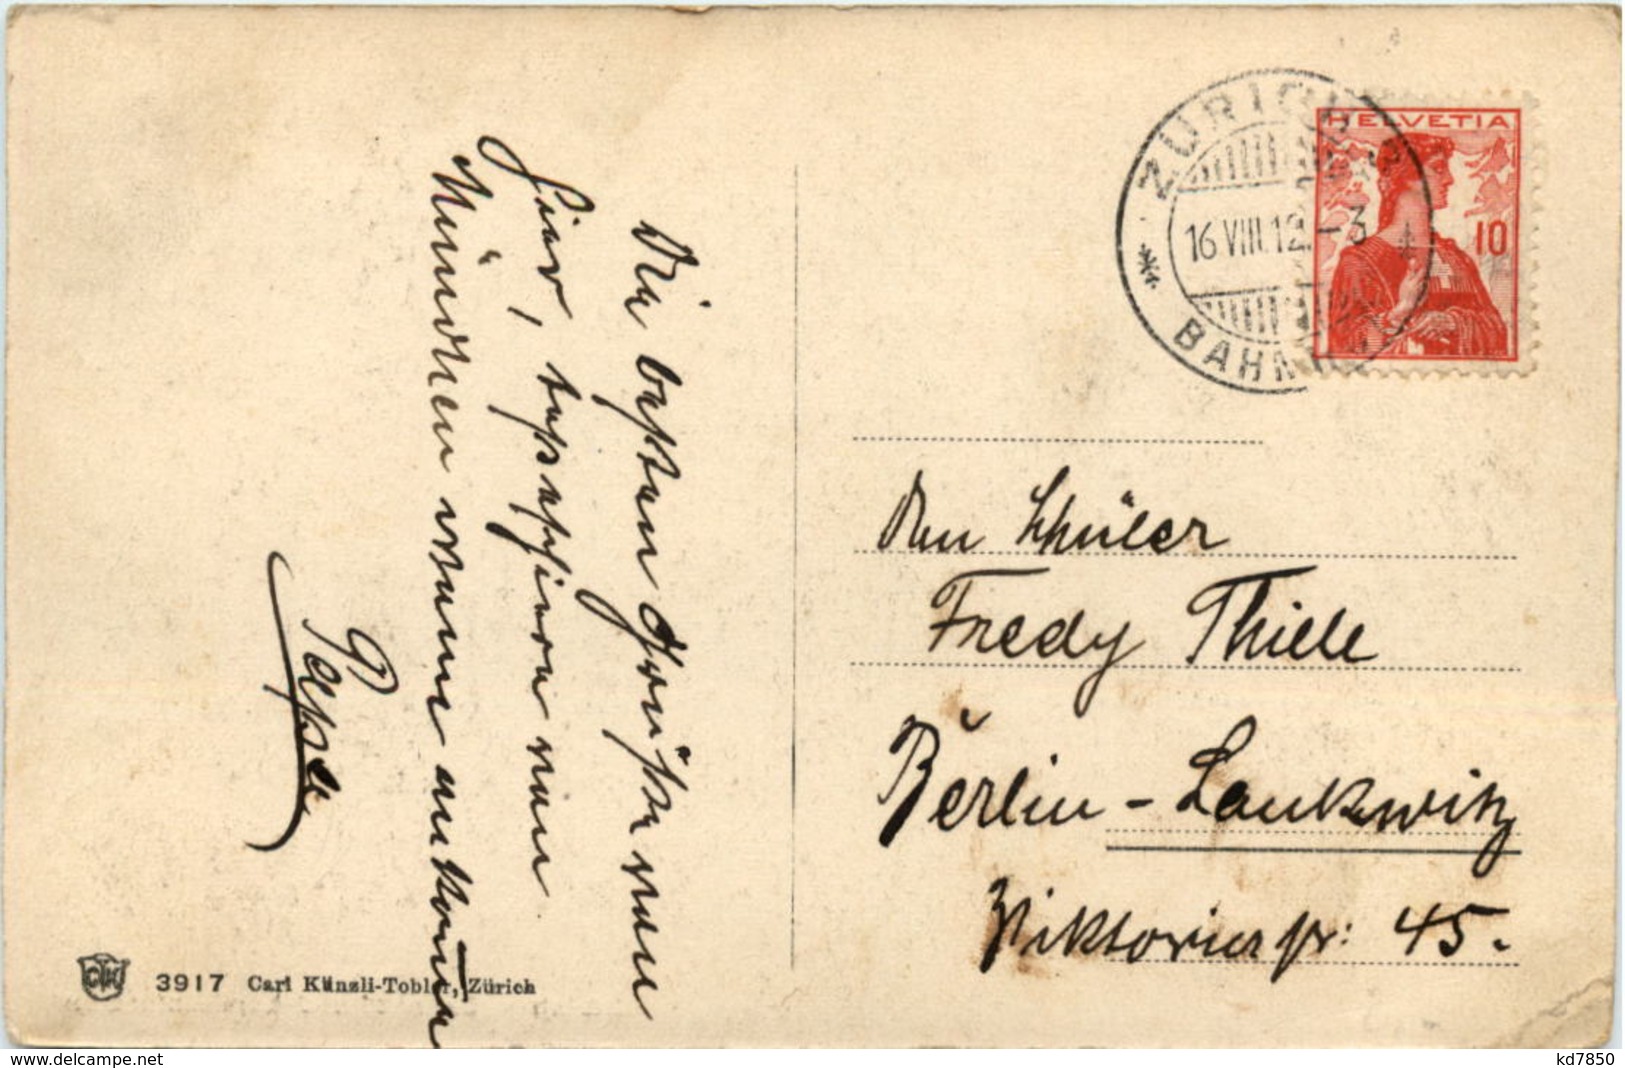 Die besten Grüße von
hier, telephoniere von
München wann ankomme
Papa
ZÜRICH
16 VIII.12.-3
BAHN
HELVETIA
10
Den Schüler
Fredy Thiele
Berlin - Lankwitz
Viktoriastr: 45.
CKT 3917 Carl Künzli-Tobler, Zürich
www.delcampe.net
kd7850